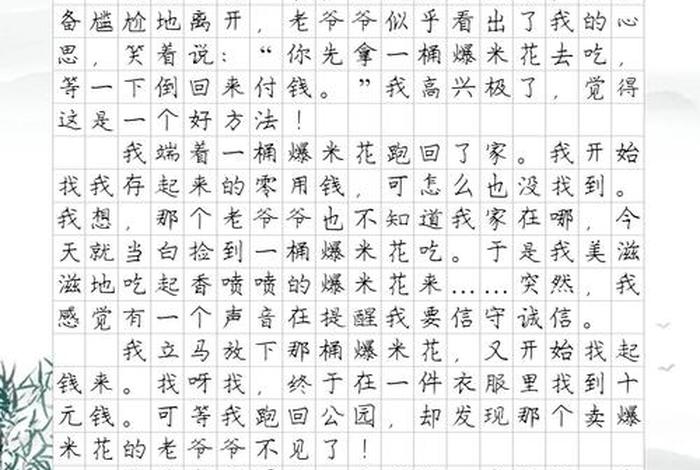 备尴尬地离开，老爷爷似乎看出了我的心
思，笑着说：“你先拿一桶爆米花去吃，
等一下倒回来付钱。”我高兴极了，觉得
这是一个好方法！
我端着一桶爆米花跑回了家。我开始
找我存起来的零用钱，可怎么也没找到。
我想，那个老爷爷也不知道我家在哪，今
天就当白捡到一桶爆米花吃。于是我美滋
滋地吃起香喷喷的爆米花来……突然，我
感觉有一个声音在提醒我要信守诚信。
我立马放下那桶爆米花，又开始找起
钱来。找呀找，终于在一件衣服里找到十
元钱。可等我跑回公园，却发现那个卖爆
米花的老爷爷不见了！